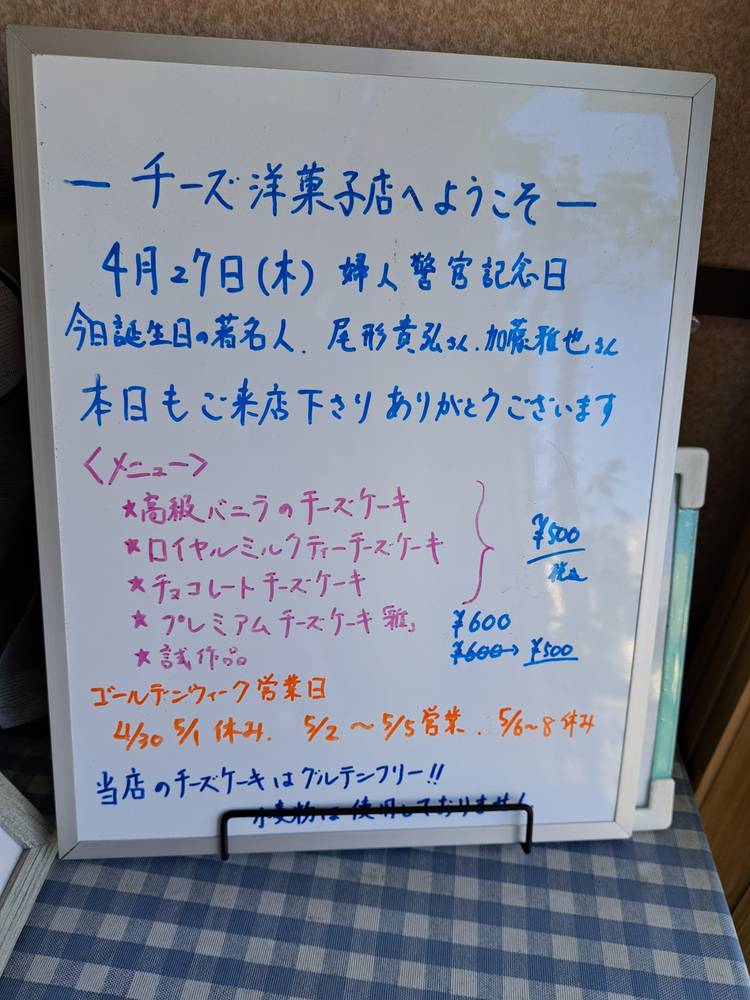 ー チーズ洋菓子店へようこそ ー
4月27日(木) 婦人警官記念日
今日誕生日の著名人. 尾形貴弘さん. 加藤雅也さん
本日もご来店下さり ありがとうございます
<メニュー>
★高級バニラのチーズケーキ
★ロイヤルミルクティーチーズケーキ
★チョコレートチーズケーキ
¥500
税込
★プレミアムチーズケーキ「雅」 ¥600
★試作品 ¥600→¥500
ゴールデンウィーク営業日
4/30 5/1 休み. 5/2 〜 5/5 営業. 5/6〜8 休み
当店のチーズケーキはグルテンフリー!!
小麦粉は使用しておりません